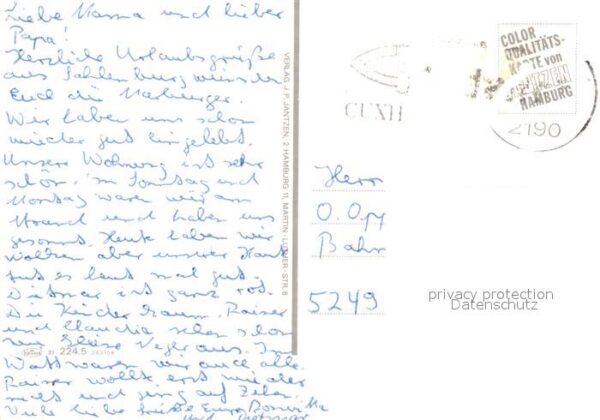 Liebe Mamma und lieber
Papa!
Herzliche Urlaubsgrüße
aus Sahlenburg wünschen
Euch die Marburger.
Wir haben uns schon
wieder gut eingelebt.
Unsere Wohnung ist sehr
schön. Im Sonntag und
Montag waren wir am
Strand und haben uns
gesonnt. Heute haben wir
Wolken aber unserer Haut
tut es laut mal gut.
Dietmar ist ganz rot.
Die Kinder braun. Rainer
und Claudia sehen schon
wie kleine Neger aus. Im
Watt waren wir auch alle.
Rainer wollte erst wieder
nicht und ging auf Zehen.
Viele liebe Grüße Eure Roswitha
und Dietmar
VERLAG J. P. JANTZEN, 2 HAMBURG 11, MARTIN-LUTHER-STR. 8
21 224.5
CUXH
COLOR
QUALITÄTS-
KARTE von
JANTZEN
HAMBURG
2190
Herr
O. Opp
Bahn
5249
privacy protection
Datenschutz